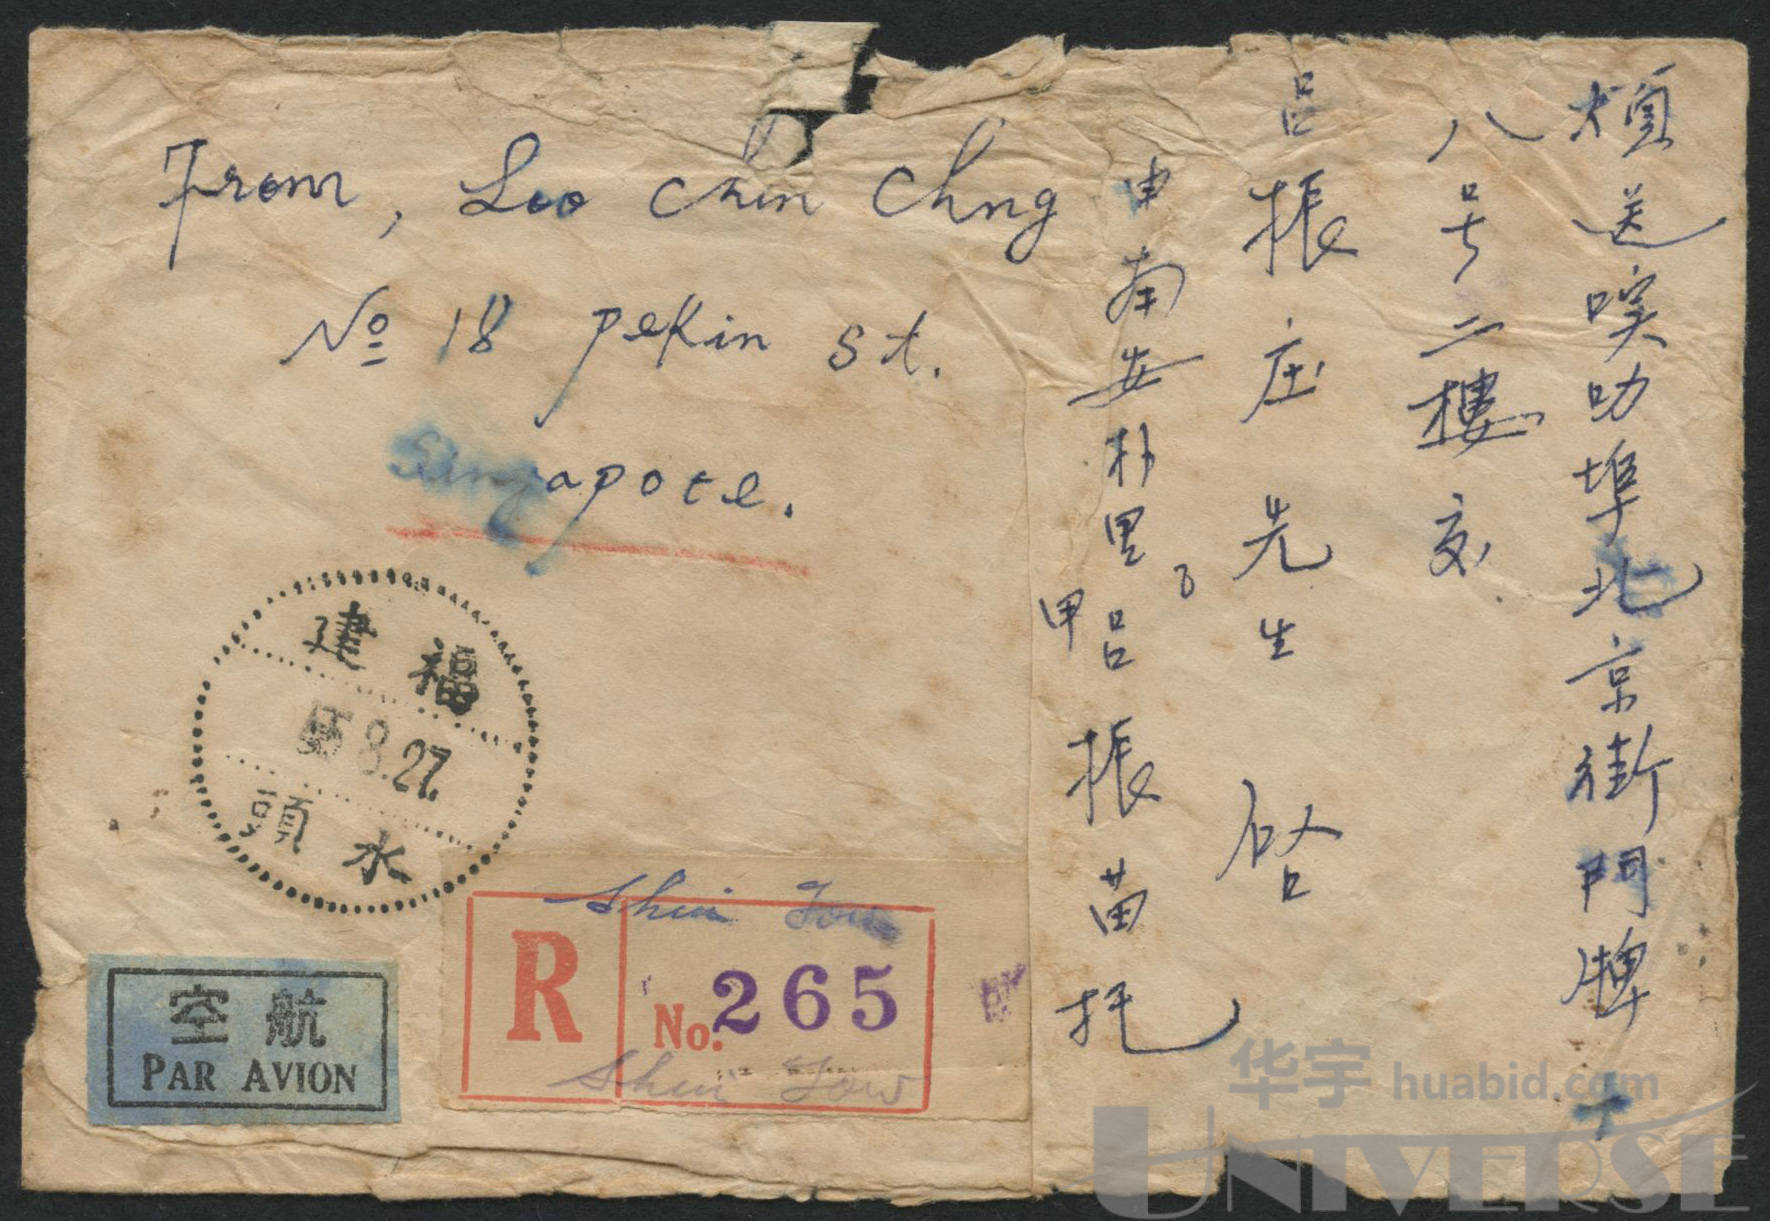 From, Loo Chin Chng
No 18 Pekin St.
Singapore.
煩送實叻埠北京街門牌十
八号二樓交
呂振庄先生 啓
由南安朴里
甲呂振苗托
福建
8.27.
水頭
航空
PAR AVION
Shui Tow
R No. 265
Shui Tow
华宇 huabid.com
UNIVERSE